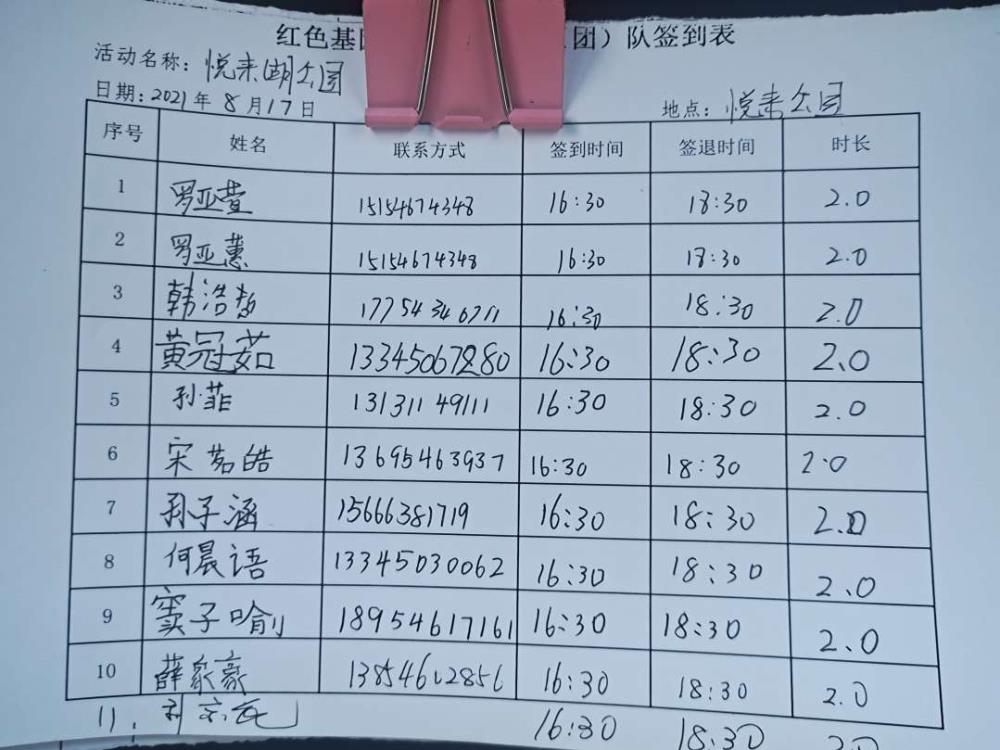 红色基 团）队签到表
活动名称：悦来湖公园
日期：2021年8月17日 地点：悦来公园
序号 姓名 联系方式 签到时间 签退时间 时长
1 罗亚萱 15154674348 16:30 18:30 2.0
2 罗亚蕙 15154674348 16:30 18:30 2.0
3 韩浩 17754346711 16:30 18:30 2.0
4 黄冠茹 13345067280 16:30 18:30 2.0
5 孙菲 13131149111 16:30 18:30 2.0
6 宋茗皓 13695463937 16:30 18:30 2.0
7 孙子涵 15666381719 16:30 18:30 2.0
8 何晨语 13345030062 16:30 18:30 2.0
9 窦子喻 18954617161 16:30 18:30 2.0
10 薛家豪 13854612856 16:30 18:30 2.0
11. 16:30 18:30